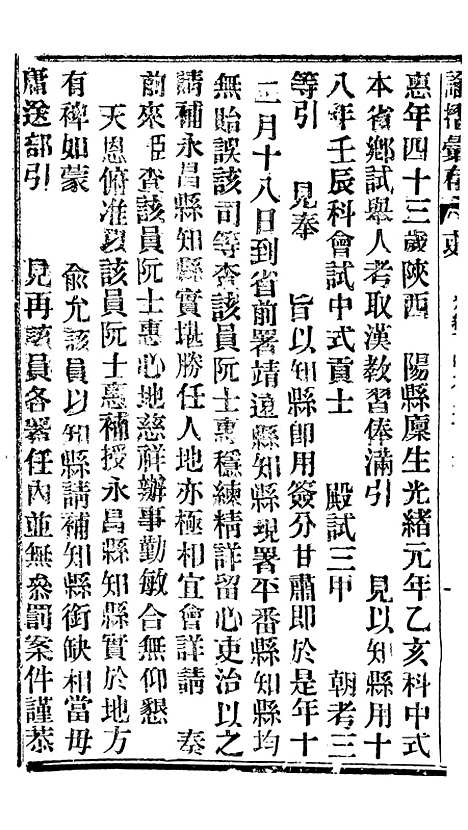 諭摺彙存
惠年四十三歲陝西 陽縣廩生光緒元年乙亥科中式
本省鄉試舉人考取漢教習俸滿引 見以知縣用十
八年壬辰科會試中式貢士 殿試三甲 朝考三
等引 見奉 旨以知縣卽用簽分甘肅卽於是年十
二月十八日到省前署靖遠縣知縣現署平番縣知縣均
無貽誤該司等查該員阮士惠穩練精詳留心吏治以之
請補永昌縣知縣實堪勝任人地亦極相宜會詳請 奏
前來臣查該員阮士惠心地慈祥辦事勤敏合無仰懇
天恩俯准以該員阮士惠補授永昌縣知縣實於地方
有裨如蒙 俞允該員以知縣請補知縣銜缺相當毋
庸送部引 見再該員各署任內並無參罰案件謹恭